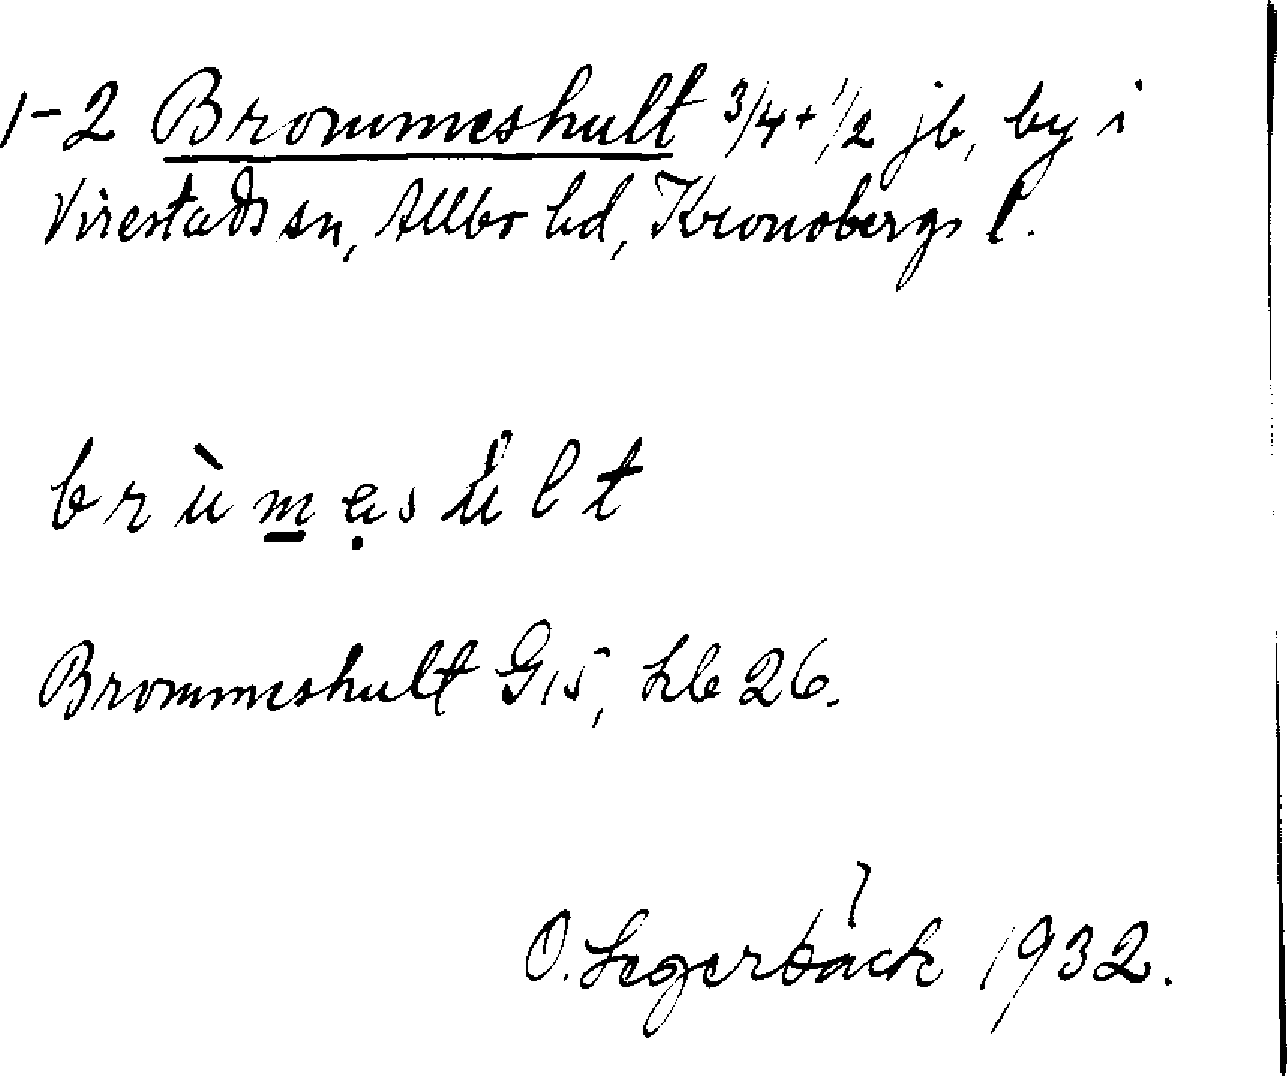 1-2 Brommeshult 3/4 + 1/2 jb, by i
Virestads sn, Allbo hd, Kronobergs l.
brùm̲ạsúlt
Brommeshult G15, hb 26.
O. Segerbäck 1932.